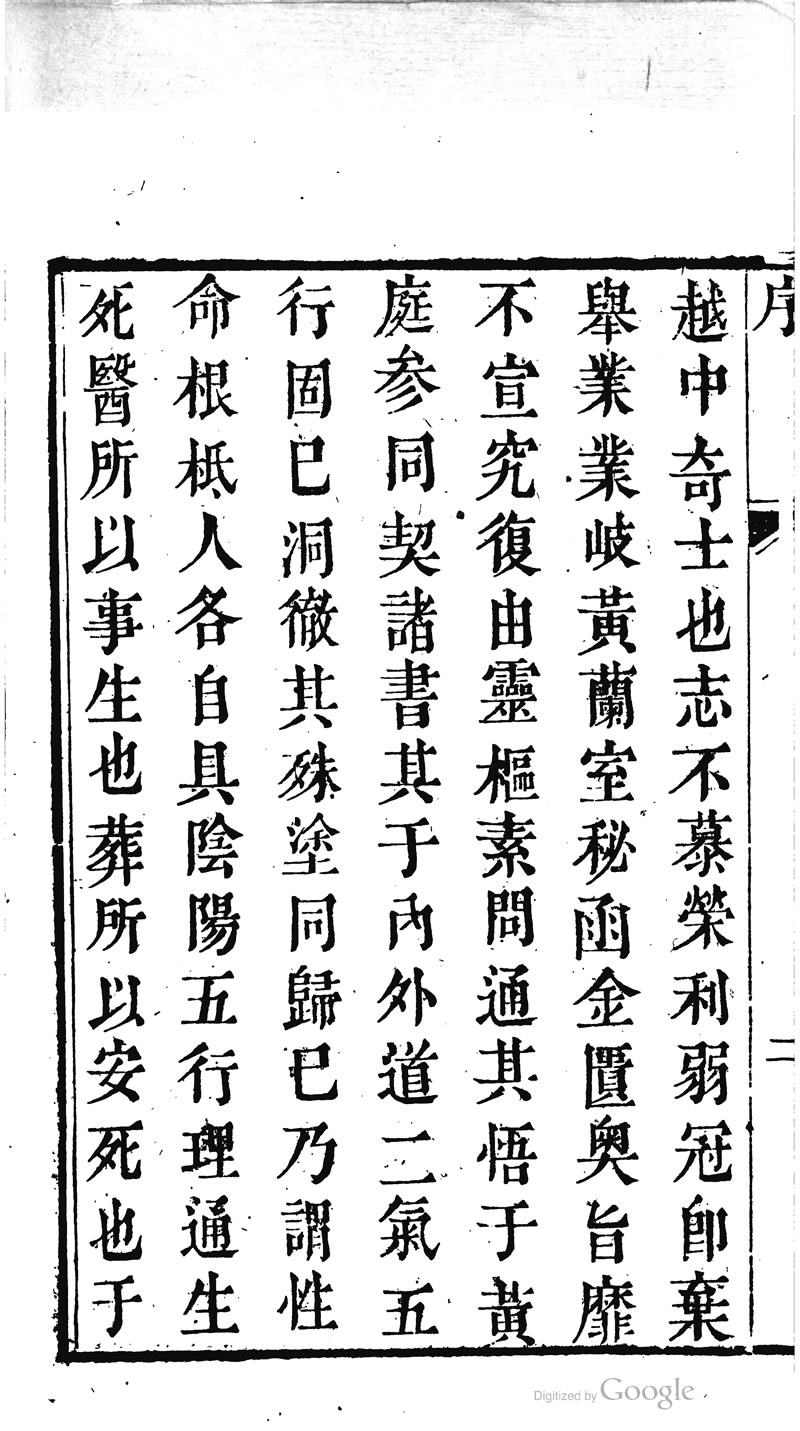 序
二
越中奇士也志不慕榮利弱冠卽棄
舉業業岐黃蘭室秘函金匱奥旨靡
不宣究復由靈樞素問通其悟于黃
庭参同契諸書其于內外道二氣五
行固已洞徹其殊塗同歸已乃謂性
命根柢人各自具陰陽五行理通生
死醫所以事生也葬所以安死也于
Digitized by Google